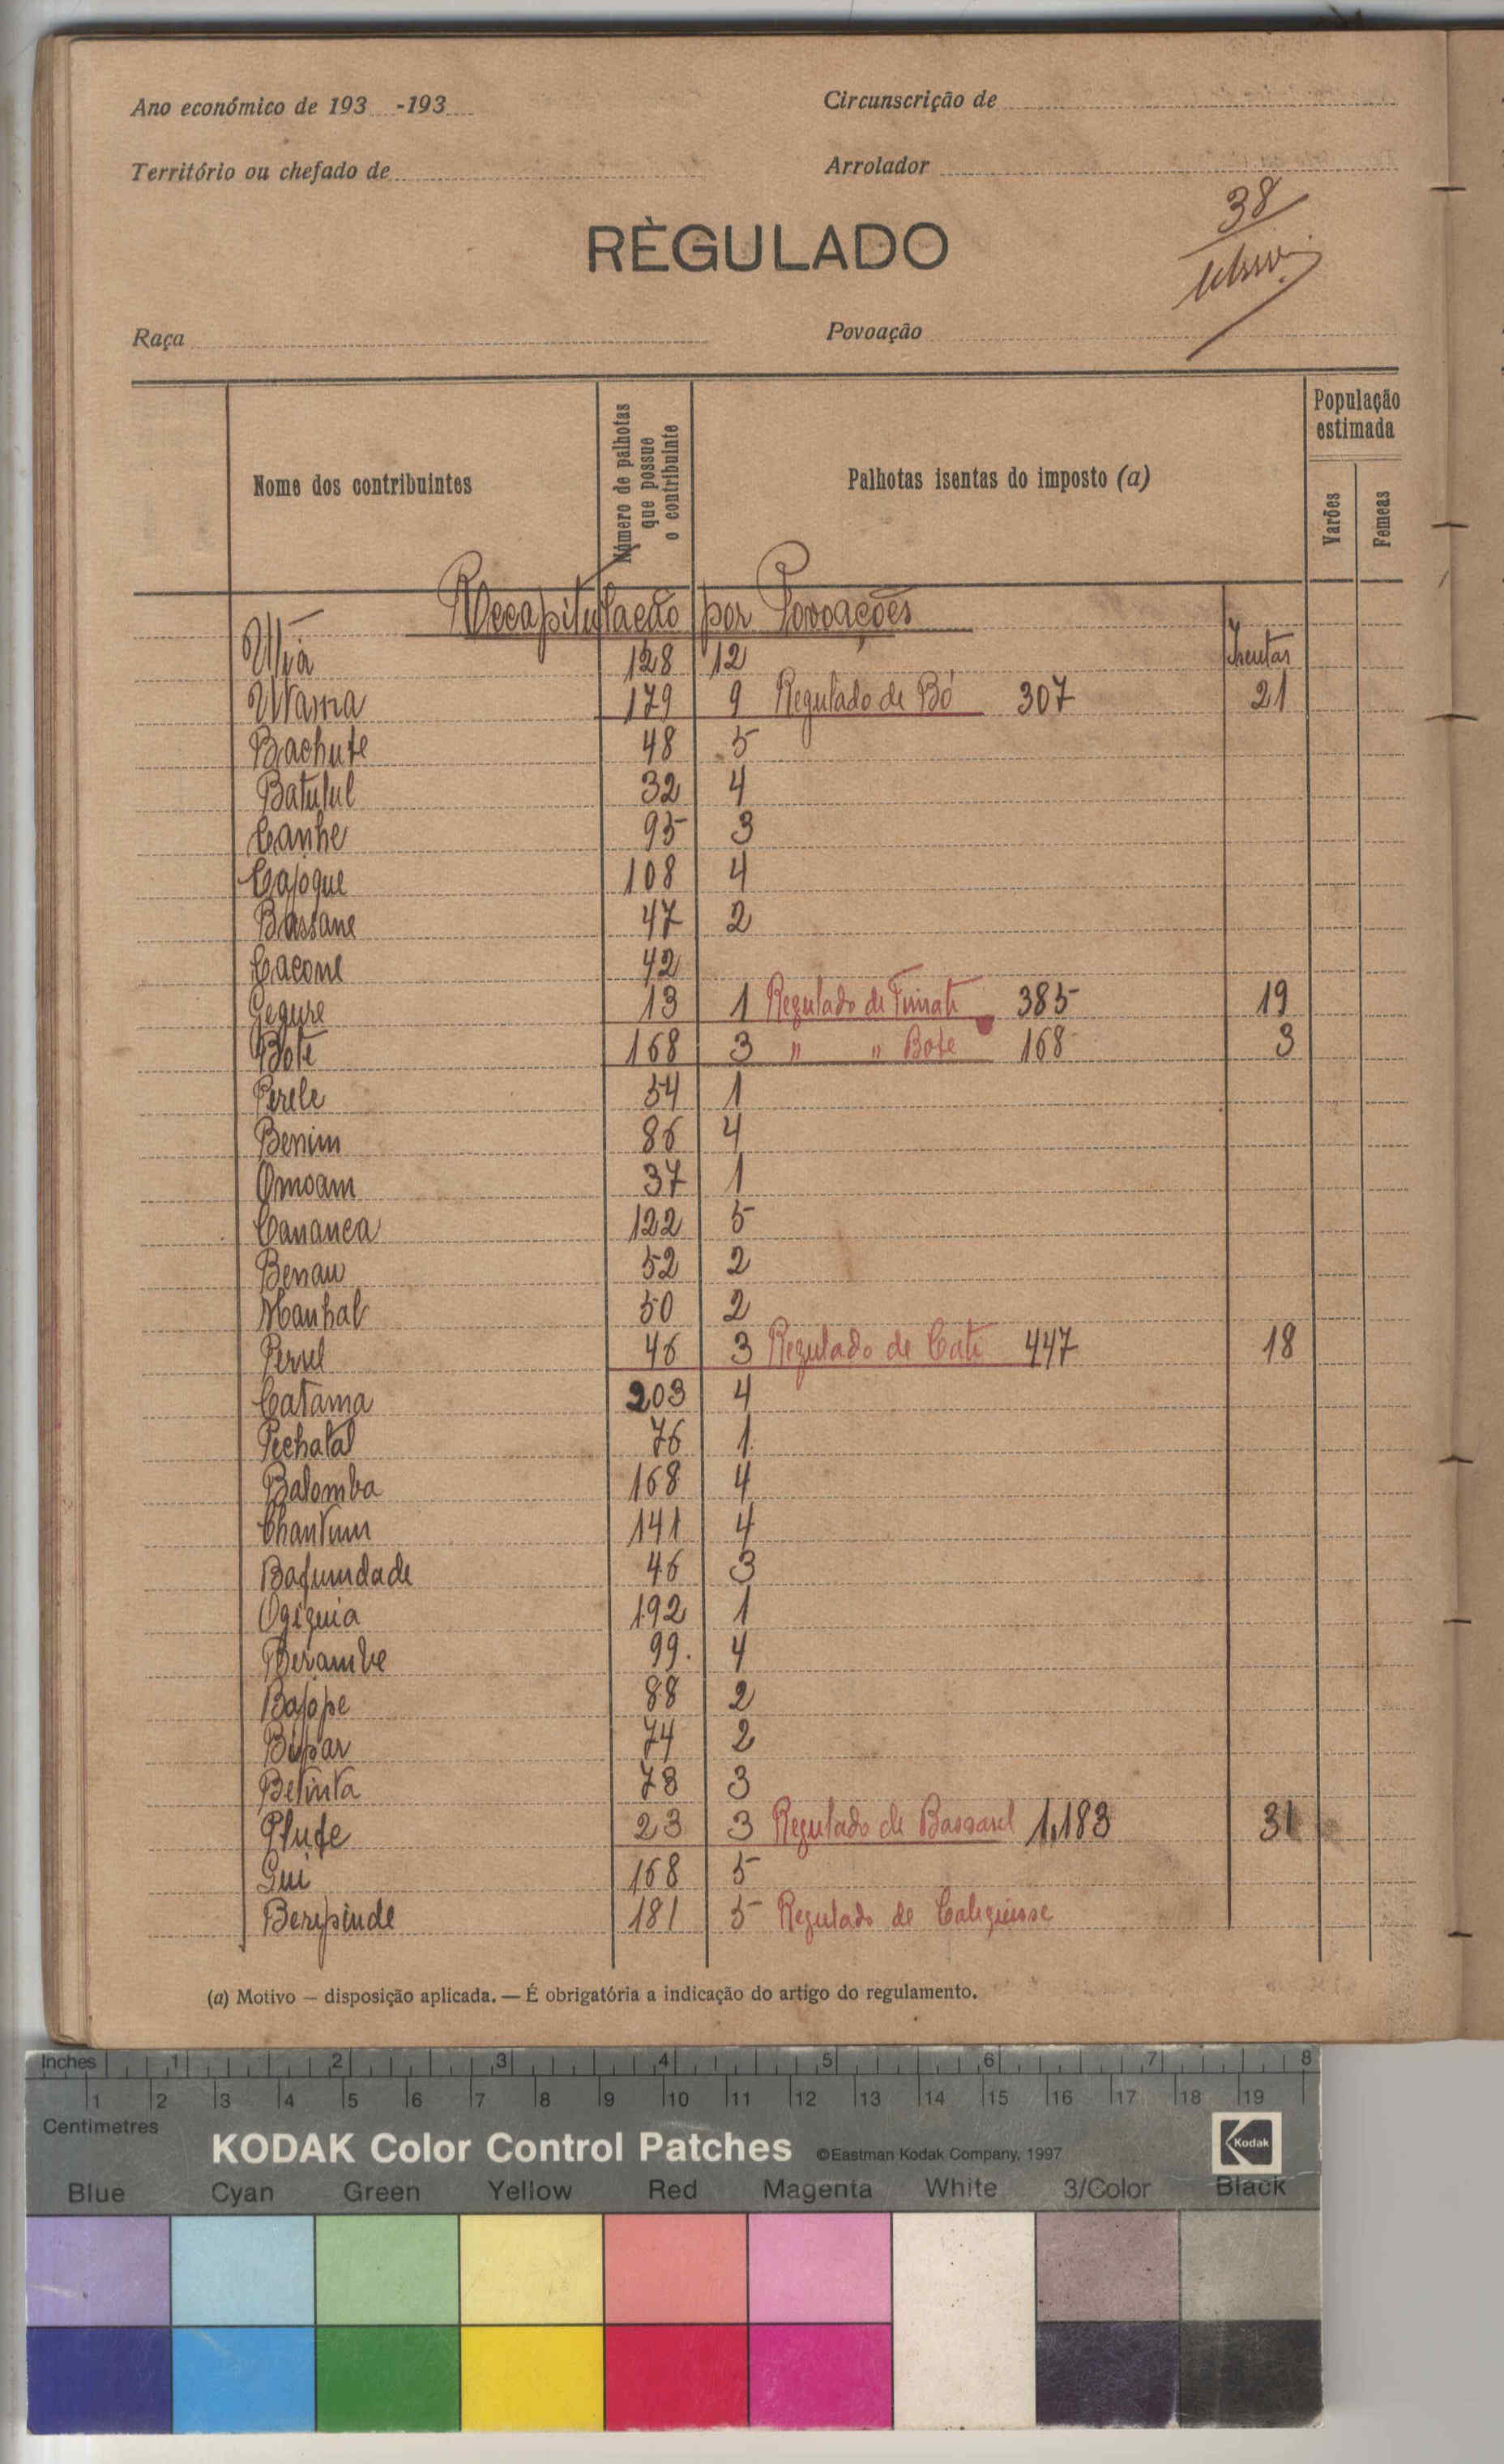 Ano económico de 193 -193
Circunscrição de
Território ou chefado de
Arrolador
38
RÈGULADO
Raça
Povoação
Nome dos contribuintes
Número de palhotas que possue o contribuinte
Palhotas isentas do imposto (a)
População estimada
Varões
Femeas
Recapitulação por Povoações
128 12 Isentas
179 9 Regulado de Bó 307 21
Bachute 48 5
Batulul 32 4
Canhe 95 3
Cajoque 108 4
Bassane 47 2
Cacone 42
Gegure 13 1 Regulado de 385 19
Bote 168 3 " " Bote 168 3
Perele 54 1
Benim 86 4
Omoam 37 1
Cananca 122 5
Benau 52 2
Manhal 50 2
46 3 Regulado de Cati 447 18
Catama 203 4
Pechatal 76 1
Balomba 168 4
Chantum 141 4
Bafundade 46 3
Ogiguia 192 1
Berambe 99. 4
Bajope 88 2
74 2
Betinta 78 3
Plufe 23 3 Regulado de Bassarel 1,183 31
Gui 168 5
181 5 Regulado de Calequisse
(a) Motivo — disposição aplicada. — É obrigatória a indicação do artigo do regulamento.
Inches 1 2 3 4 5 6 7 8
1 2 3 4 5 6 7 8 9 10 11 12 13 14 15 16 17 18 19
Centimetres
KODAK Color Control Patches ©Eastman Kodak Company, 1997 Kodak
Blue Cyan Green Yellow Red Magenta White 3/Color Black